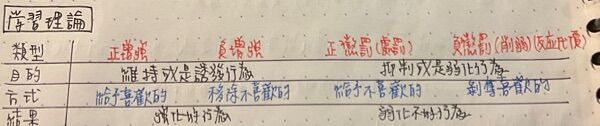 學習理論
類型 正增強 負增強 正懲罰(處罰) 負懲罰(削弱)(反應代價)
目的 維持或是誘發行為 抑制或是弱化行為
方式 給予喜歡的 移除不喜歡的 給予不喜歡的 剝奪喜歡的
結果 強化 的行為 弱化不好行為